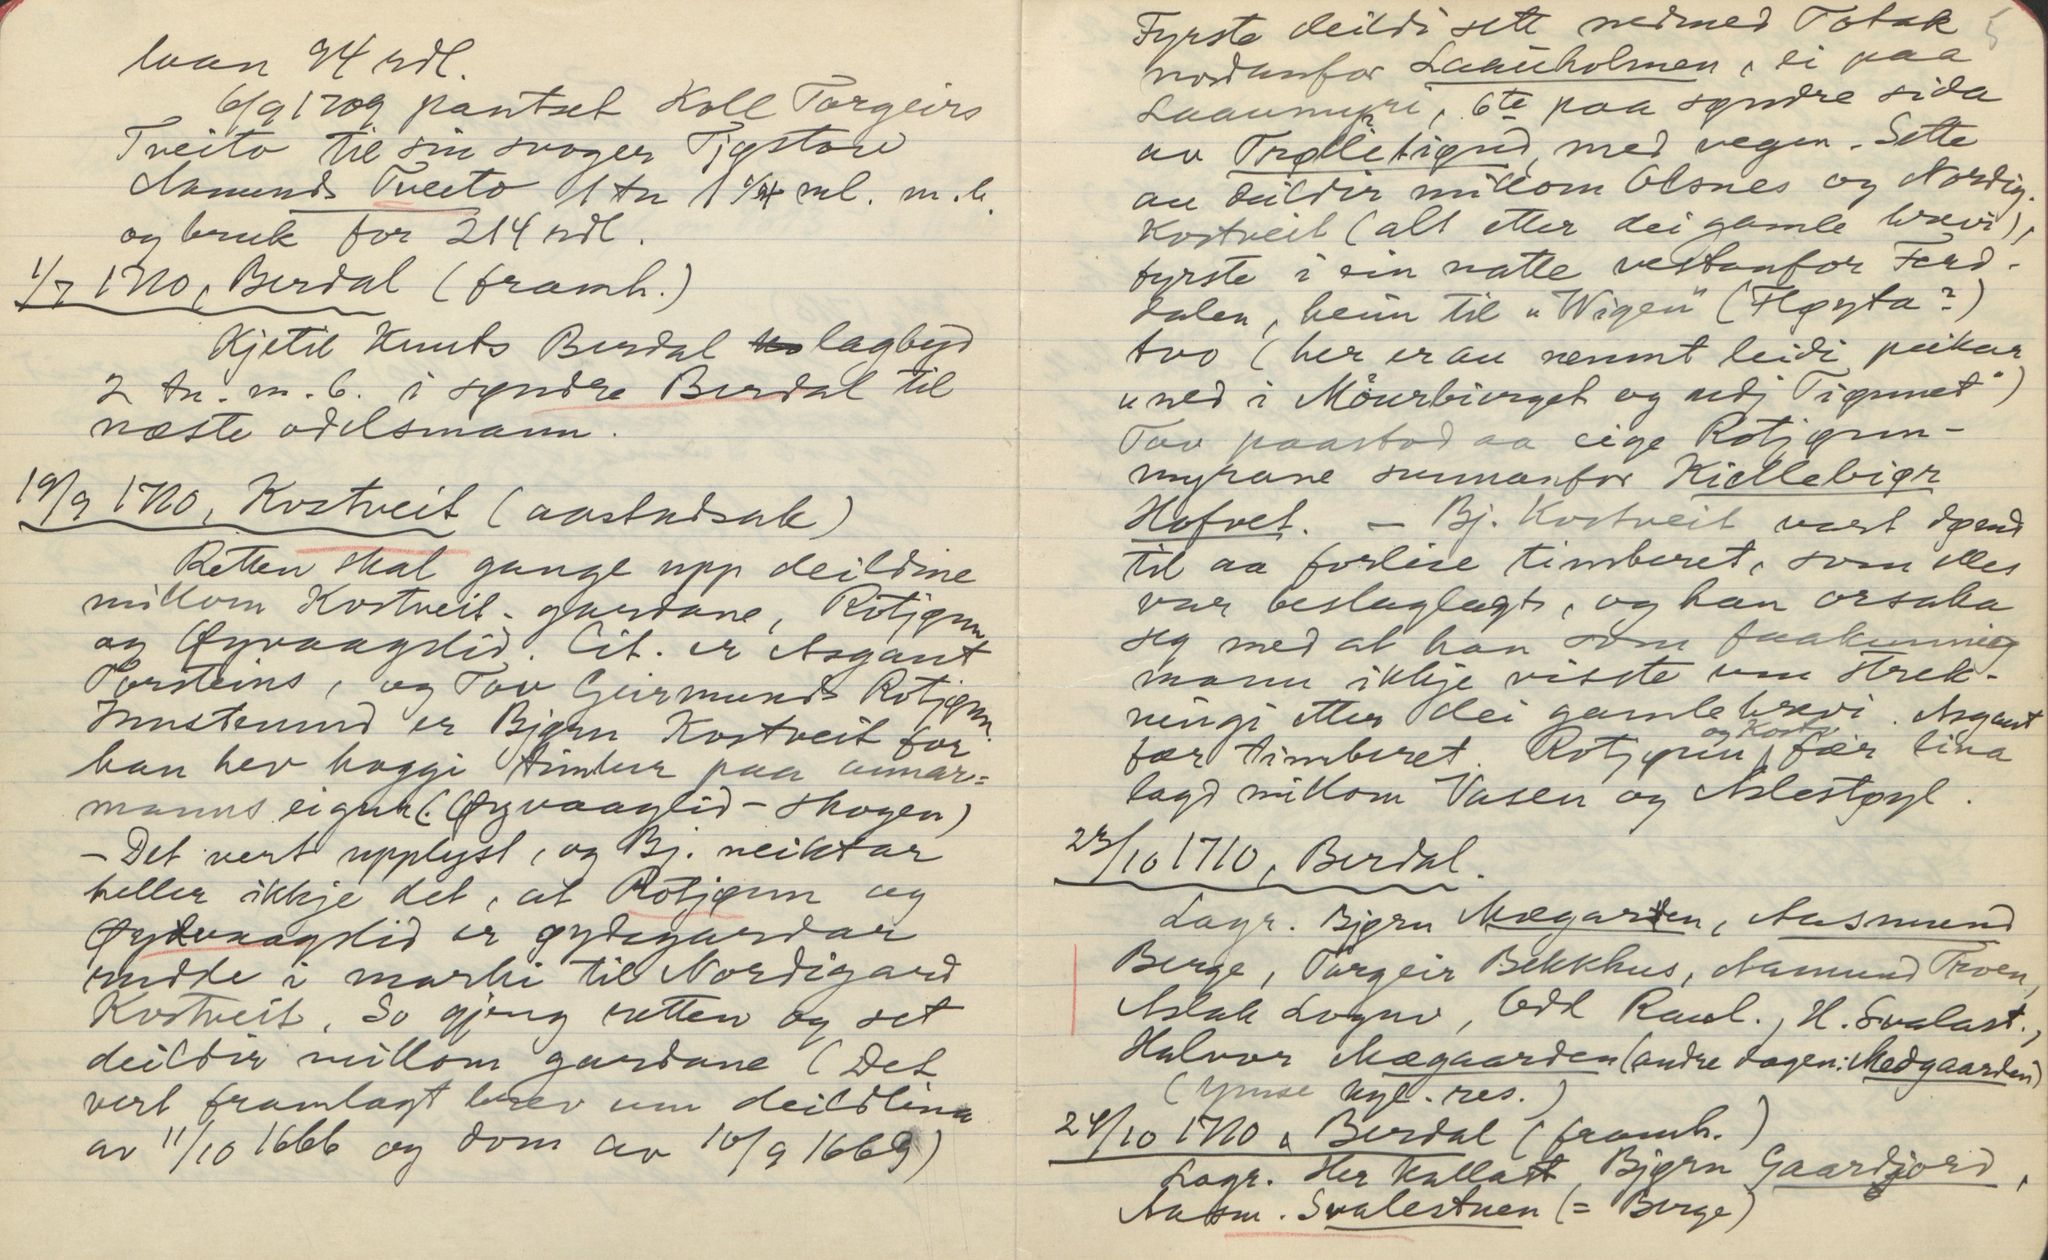 laan 94 rdl.
6/9 1709 pantset Koll Torgeirs
Tveito til sin svoger Tjøstov
Aamunds Tveito 1 tn 1 1/4 ml. m.b.
og bruk for 214 rdl.
1/7 1710, Berdal (framh.)
Kjetil Knuts Berdal lagbyd
2 tn. m.b. i syndre Berdal til
næste odelsmann.
19/9 1710, Kostveit (aastadsak)
Retten skal gange upp deildine
millom Kostveit-gardane, Rotjønn
og Øyvaagslid. Cit. er Asgaut
Torsteins, og Tov Geirmunds Rotjønn.
Innstemnd er Bjørn Kostveit for
han hev hoggi timber paa annar-
manns eign (Øyvaaglid-skogen)
- Det vert upplyst, og Bj. neiktar
heller ikkje det, at Rotjønn og
Øydvaagslid er øydegardar
rudde i marki til Nordigard
Kostveit. So gjeng retten og set
deildir millom gardane (Det
vert framlagt brev um deildlina
av 11/10 1666 og dom av 10/9 1669)
5
Fyrste deildi sett nedmed Totak
nordanfor Laauholmen, ei paa
Laaumyri, 6te paa syndre sida
av Trølletiønd, med vegen. Sette
au deildir millom Olsnes og Nordig.
Kostveit (alt etter dei gamle brevi),
fyrste i ein natte vestanfor Ferd-
dalen, beint til "Wigen" (Fløyta?)
tvo (her er au nemnt leidi peikar
"ned i Mourbierget og udj Tiønnet")
Tov paastod aa eige Rotjønn-
myrane sunnanfor Kiellebiør
Hofvet. - Bj. Kostveit vart dømd
til aa forlise timberet, som elles
var beslaglagt, og han orsaka
seg med at han som faakunnig
mann ikkje visste um strek-
ningi etter dei gamle brevi. Asgaut
fær timberet. Rotjønn og Kostv. fær lina
lagd millom Vasen og Aslestøyl.
23/10 1710, Berdal.
Lagr. Bjørn Mægarden, Aasmund
Berge, Torgeir Bekkhus, Aamund Troen,
Aslak Loguv, Odd Raul., H. Svalast.,
Halvor Mægaarden (andre dagen: Medgaarden)
(ymse kyl. res.)
24/10 1710, Berdal (framh.)
Lagr. Her kallast Bjørn Gaardjord,
Aasm. Svalestuen (= Berge)